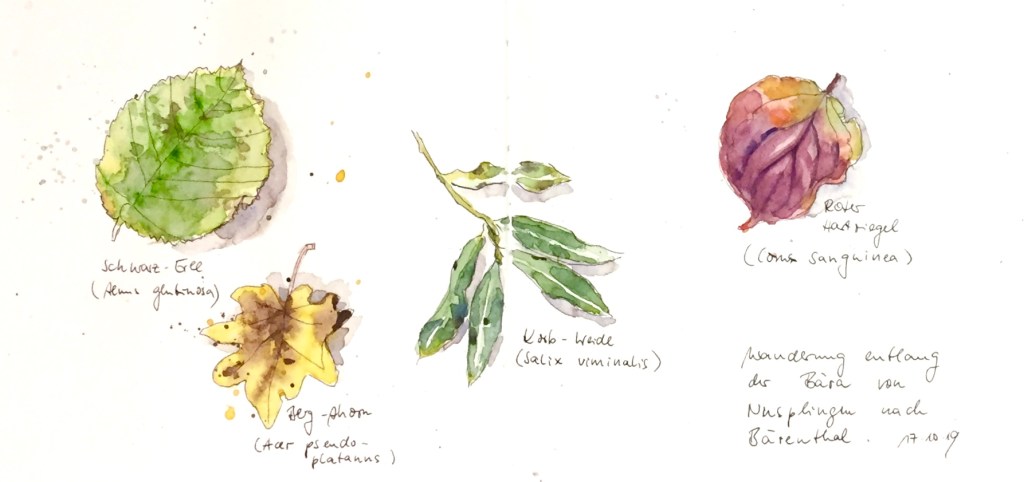 Schwarz-Erle
(Alnus glutinosa)
Berg-Ahorn
(Acer pseudo-
platanus)
Korb-Weide
(Salix viminalis)
Roter
Hartriegel
(Cornus sanguinea)
Wanderung entlang
der Bära von
Nusplingen nach
Bärenthal. 17.10.19